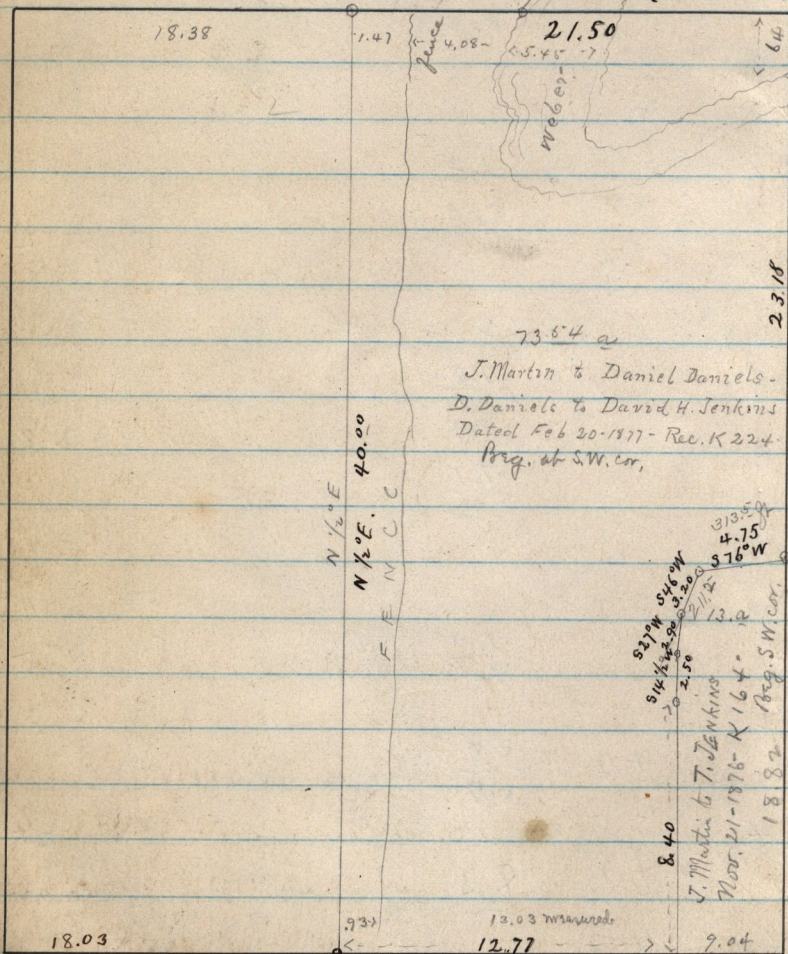 18.38
1.47
fence
4.08
5.45
21.50
64
Weber
23.18
73.54 a
J. Martin to Daniel Daniels.
D. Daniels to David H. Jenkins
Dated Feb 20-1877 - Rec. K 224.
Beg. at S.W. cor.
N ½° E
N ½° E. 40.00
FENCE
313.5
4.75
S 76° W
S 46° W
3.20
211.2
S 27° W
2.90
S 14½ W
2.50
13. a
J. Martin to T. JENKINS
Nov. 21-1876- K 164-
18.82 Beg. S.W. cor.
8.40
.93
13.03 measured
18.03
12.77
9.04